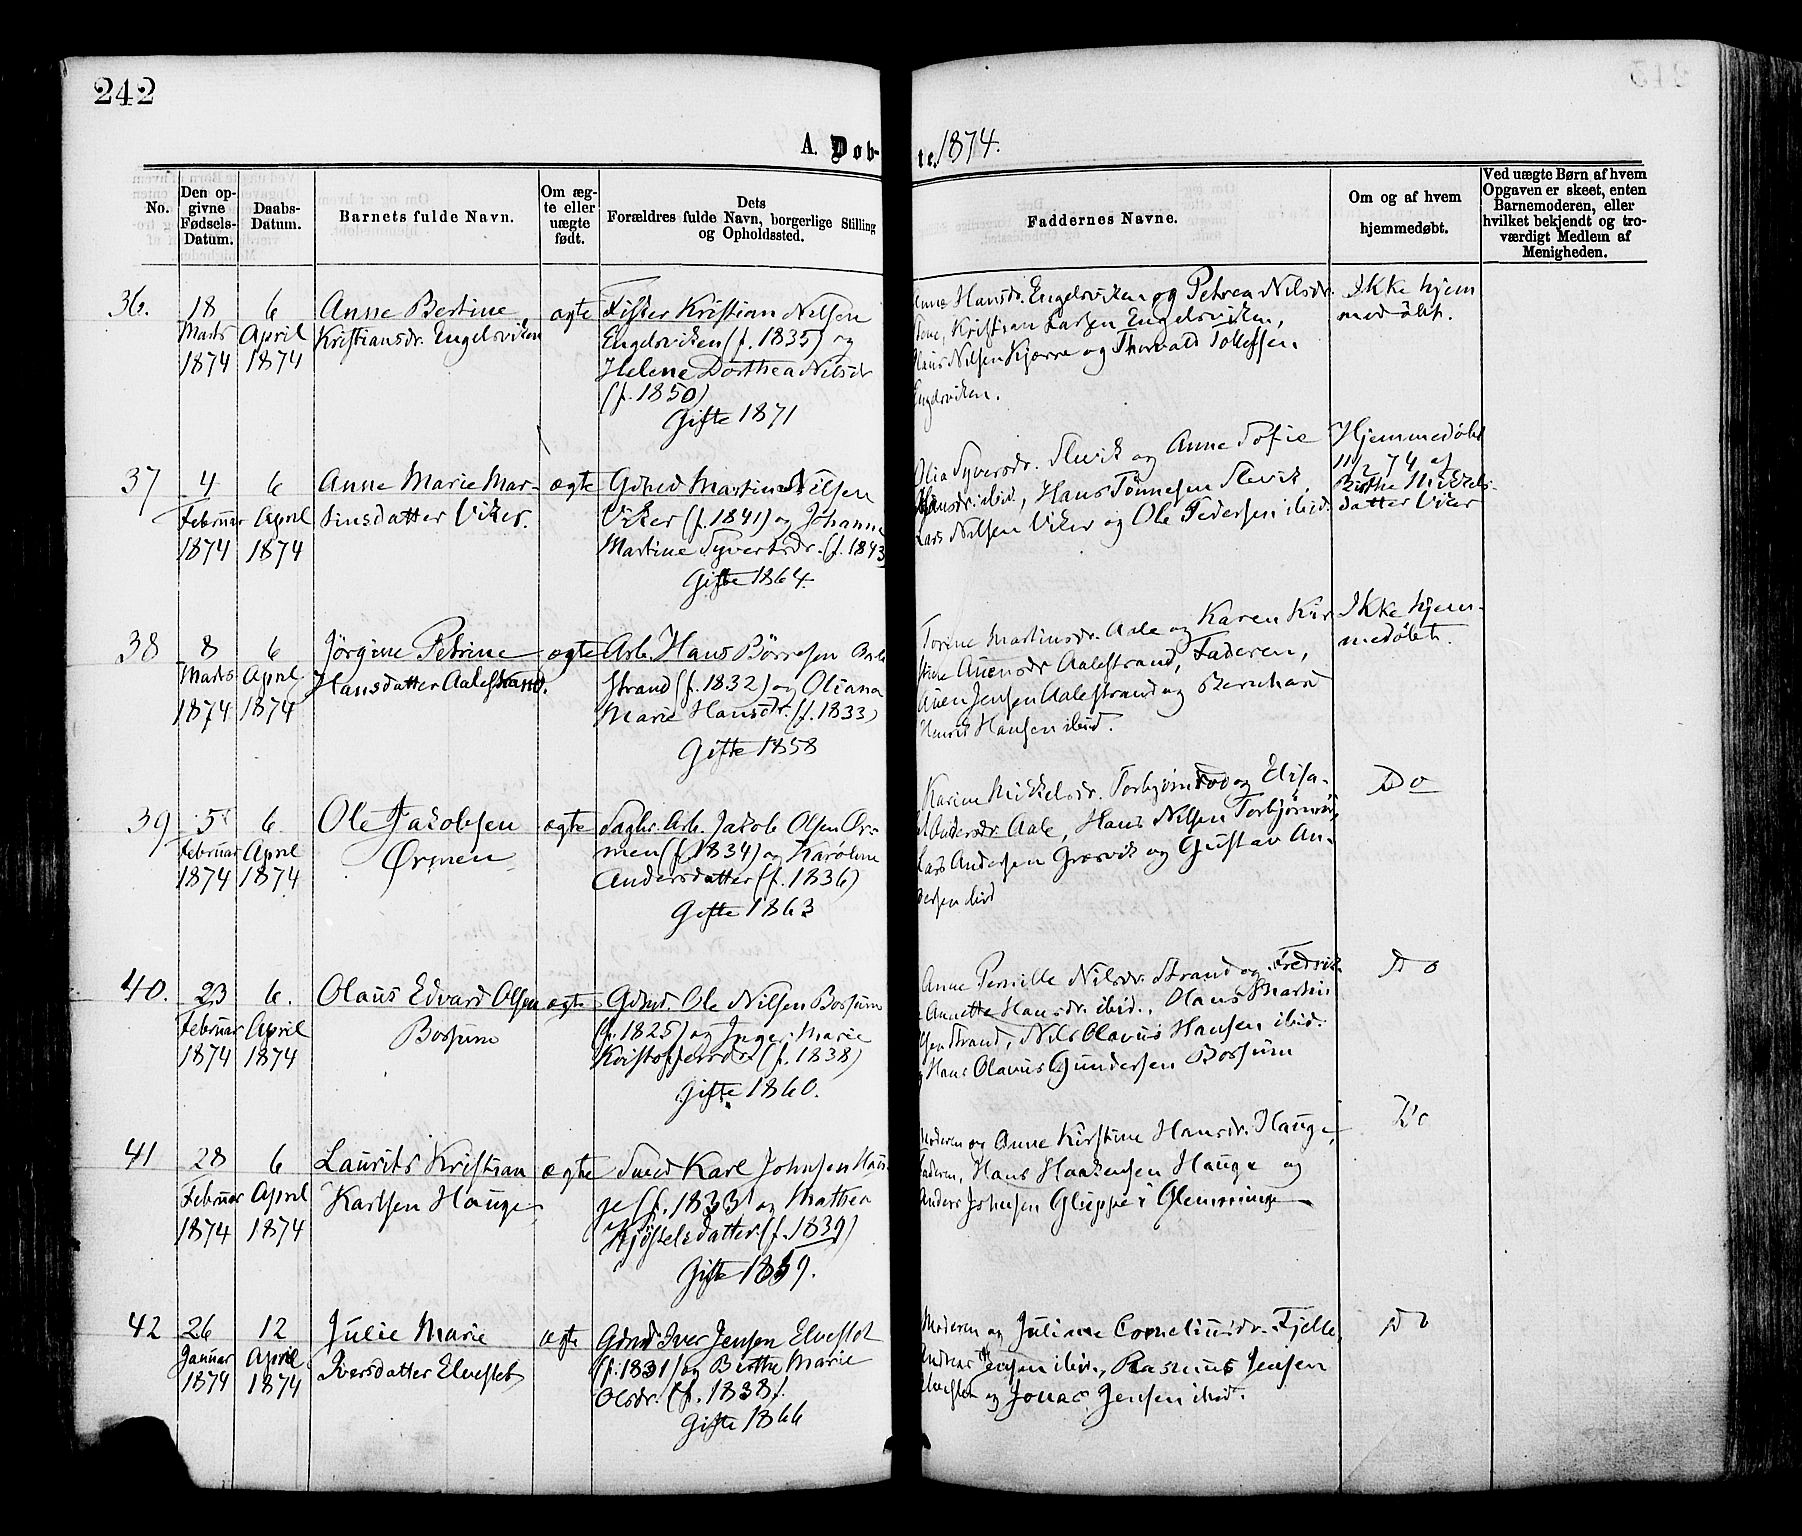 242
A. Døb-
te. 1874.
No.
Den op-
givne
Fødsels-
Datum.
Daabs-
Datum.
Barnets fulde Navn.
Om æg-
te eller
uægte
født.
Dets
Forældres fulde Navn, borgerlige Stilling
og Opholdssted.
Faddernes Navne.
Om og af hvem
hjemmedøbt.
Ved uægte Børn af hvem
Opgaven er skeet, enten
Barnemoderen, eller
hvilket bekjendt og tro-
værdigt Medlem af
Menigheden.
36.
18
Marts
1874
6
April
1874
Anne Bertine
Kristiansdr. Engelsviken
ægte
Fisker Kristian Nilsen
Engelsviken (f. 1835) og
Helene Dorthea Nilsdr
(f. 1850)
Gifte 1871
Hansdr. Engelsviken og Petrea Nilsdr.
Kristian Larsen Engelsviken,
Nilsen Kjærre og Thorvald Tollefsen
Engelsviken.
Ikke hjem
medøbt.
37
4
Februar
1874
6
April
1874
Anne Marie Mar-
tinsdatter Viker.
ægte
Gdmd Martin Nilsen
Viker (f. 1841) og Johanne
Martine Syvertsdr. (f. 1843)
Gifte 1864.
Olia Syversdr. Slevik og Anne Sofie
Hansdr. ibid, Hans Tønnesen Slevik,
Lars Nilsen Viker og Ole Pedersen ibid.
Hjemmedøbt
11/2 74 af
Birthe Mikkels-
datter Viker
38
8
Marts
1874
6
April
1874
Jørgine Petrine
Hansdatter Aalestrand.
ægte
Arb. Hans Børresen
strand (f. 1832) og Oliana
Marie Hansdr. (f. 1833)
Gifte 1858
Torine Martinsdr. Aale og Karen Kir
stine Auensdr Aalestrand, Faderen,
Auen Jensen Aalestrand og Bernhard
Henrik Hansen ibid.
Ikke hjem-
medøbt.
39
5
Februar
1874
6
April
1874
Ole Jakobsen
Ørmen
ægte
Sagbr. Arb. Jakob Olsen Ør-
men (f. 1834) og Karoline
Andersdatter (f. 1836)
Gifte 1863
Karine Mikkelsdr. Torbjørnsrød og Elisa-
Andersdr Aale, Hans Nilsen Torbjørnsrød,
Lars Andersen Græsvik og Gustav An-
dersen ibid
Do
40.
23
Februar
1874
6.
April
1874
Olaus Edvard Olsen
Bossum
ægte
Gdmd. Ole Nilsen Bossum
(f. 1825) og Inger Marie
Kristoffersdr. (f. 1838)
Gifte 1860.
Anne Pernille Nilsdr. Strand og Fredrik-
Annette Hansdr. ibid., Olaus Martin
Strand, Nils Olavus Hansen ibid.
Hans Olavus Gundersen Bossum
Do
41
28
Februar
1874
6
April
1874
Laurits Kristian
Karlsen Hauge
ægte
Smed Karl Johnsen Hau-
ge (f. 1833) og Mathea
Kjøstelsdatter (f. 1839)
Gifte 1859.
Moderen og Anne Kirstine Hansdr. Hauge,
Faderen, Hans Haakensen Hauge og
Anders Johnsen Gluppe i Glemminge
Do
42
26
Januar
1874
12
April
1874
Julie Marie
Iversdatter Elvestet
ægte
Gdmd Iver Jensen Elvestet
(f. 1831) og Birthe Marie
Olsdr. (f. 1838).
Gifte 1866
Moderen og Juliane Corneliusdr. Fjelle
Andreas Jensen ibid., Rasmus Jensen
Elvestet og Jonas Jensen ibid.
Do